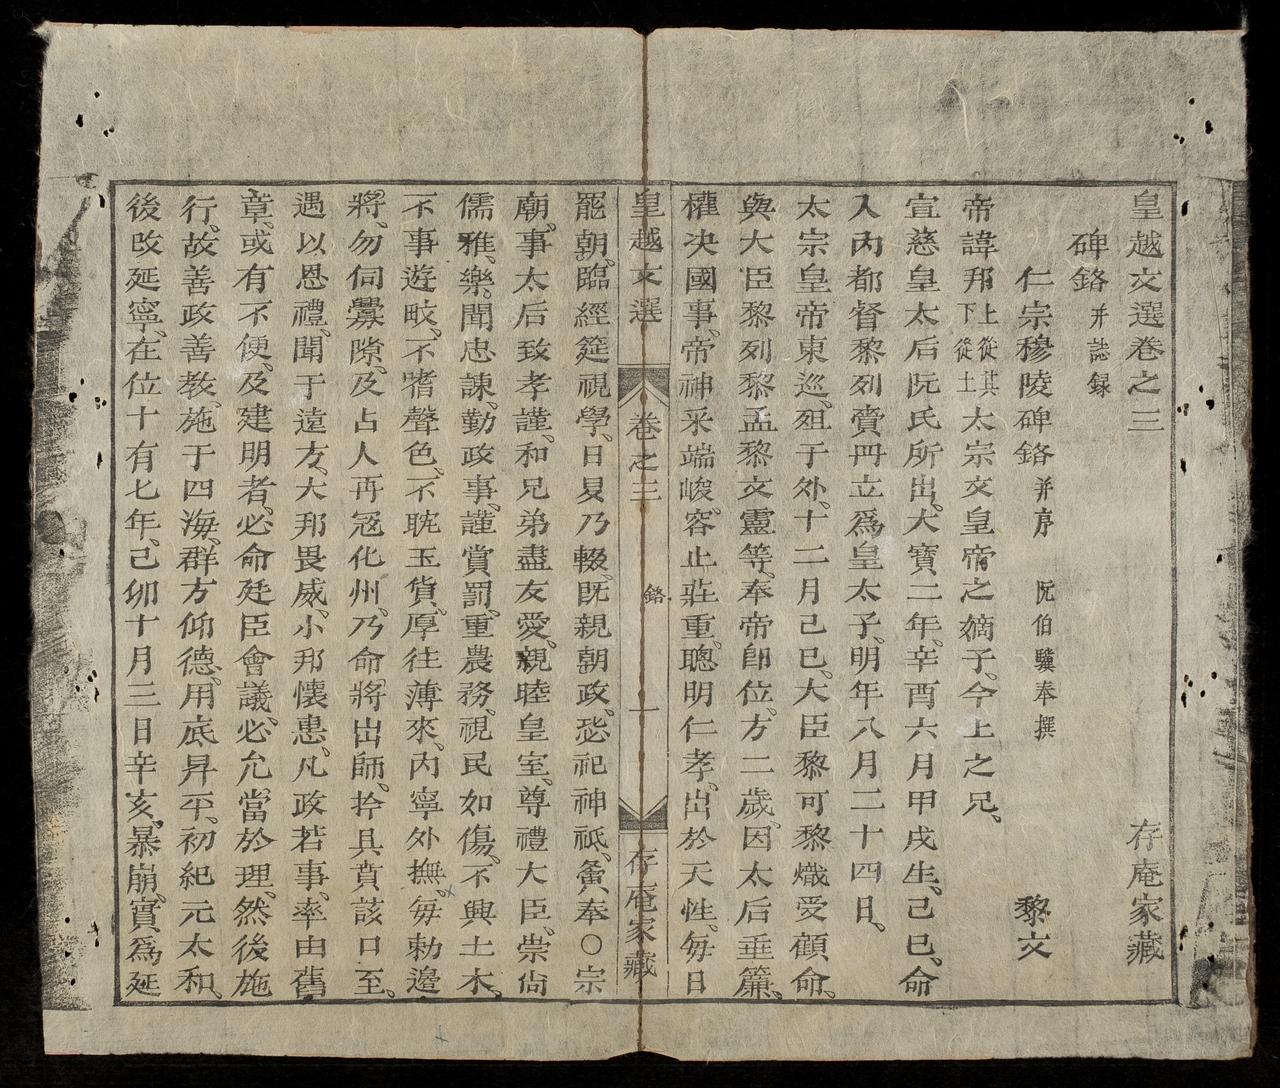 皇越文選卷之三　存庵家藏
碑銘并誌录
仁宗穆陵碑銘并序　阮伯驥奉撰　黎文
帝諱邦上從其下從土太宗文皇帝之嫡子、今上之兄、
宣慈皇太后阮氏所出、大寶二年、辛酉六月甲戌生、己巳、命
入內都督黎列賫冊立爲皇太子、明年八月二十四日、
太宗皇帝東巡、殂于外、十二月己巳、大臣黎可黎熾受顧命、
與大臣黎列黎孟黎文靈等、奉帝卽位、方二歲、因太后垂簾、
權決國事、帝神采端峻、容止莊重、聰明仁孝、出於天性、每日
皇越文選　卷之三　銘　一　存庵家藏
罷朝、臨經筵視學、日昃乃輟、旣親朝政、恐祀神祇、夤奉○宗
廟、事太后致孝謹、和兄弟盡友愛、親睦皇室、尊禮大臣、崇尙
儒雅、樂聞忠諫、勤政事、謹賞罰、重農務、視民如傷、不興土木、
不事遊畋、不嗜聲色、不耽玉貨、厚往薄來、內寧外撫、每勅邊
將、勿伺釁隙、及占人再冦化州、乃命將出師、拎其賁該口至、
遇以恩禮、聞于遠方、大邦畏威、小邦懷惠、凡政若事、率由舊
章、或有不便、及建明者、必命廷臣會議、必允當於理、然後施
行、故善政善教、施于四海、群方仰德、用底昇平、初紀元太和、
後改延寧、在位十有七年、己卯十月三日辛亥、暴崩、實爲延